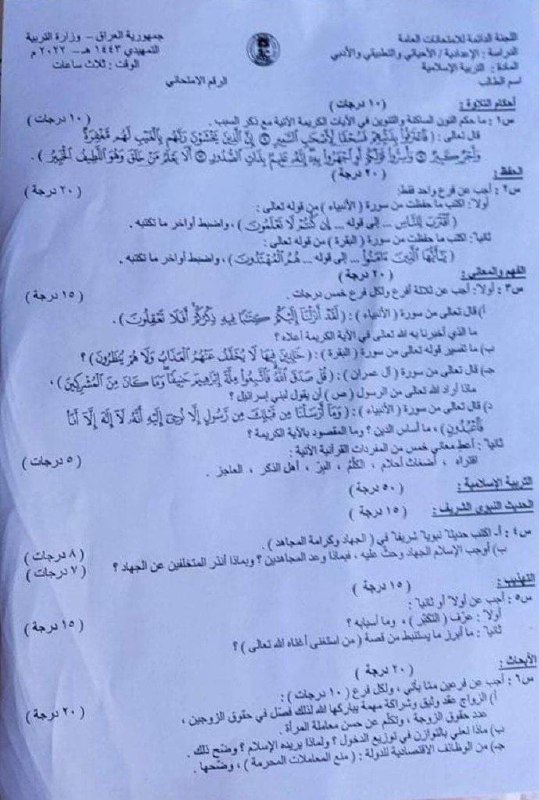 جمهورية العراق – وزارة التربية
التمهيدي ١٤٤٣ هـ - ٢٠٢٢ م
الوقت : ثلاث ساعات
الرقم الامتحاني
اللجنة الدائمة للامتحانات العامة
الدراسة : الإعدادية / الأحيائي والتطبيقي والأدبي
المادة : التربية الإسلامية
اسم الطالب
أحكام التلاوة : ( ١٠ درجات )
س١ : ما حكم النون الساكنة والتنوين في الآيات الكريمة الآتية مع ذكر السبب. ( ١٠ درجات )
قال تعالى : ( فَاعْتَرَفُوا بِذَنْبِهِمْ فَسُحْقًا لِأَصْحَابِ السَّعِيرِ ۝ إِنَّ الَّذِينَ يَخْشَوْنَ رَبَّهُمْ بِالْغَيْبِ لَهُمْ مَغْفِرَةٌ
وَأَجْرٌ كَبِيرٌ ۝ وَأَسِرُّوا قَوْلَكُمْ أَوِ اجْهَرُوا بِهِ إِنَّهُ عَلِيمٌ بِذَاتِ الصُّدُورِ ۝ أَلَا يَعْلَمُ مَنْ خَلَقَ وَهُوَ اللَّطِيفُ الْخَبِيرُ ) .
الحفظ : ( ٢٠ درجة )
س٢ : أجب عن فرع واحد فقط: ( ٢٠ درجة )
أولاً: اكتب ما حفظت من سورة ( الأنبياء ) من قوله تعالى :
( اقْتَرَبَ لِلنَّاسِ ... إلى قوله ... إِنْ كُنْتُمْ لَا تَعْلَمُونَ ) ، واضبط أواخر ما تكتبه .
ثانياً: اكتب ما حفظت من سورة ( البقرة ) من قوله تعالى :
( يَا أَيُّهَا الَّذِينَ آمَنُوا ... إلى قوله ... هُمُ الْمُهْتَدُونَ ) ، واضبط أواخر ما تكتبه .
الفهم والمعاني : ( ٢٠ درجة )
س٣ : أولاً: أجب عن ثلاثة أفرع ولكل فرع خمس درجات . ( ١٥ درجة )
أ) قال تعالى من سورة ( الأنبياء ) : ( لَقَدْ أَنْزَلْنَا إِلَيْكُمْ كِتَابًا فِيهِ ذِكْرُكُمْ أَفَلَا تَعْقِلُونَ ) .
ما الذي أخبرنا به الله تعالى في الآية الكريمة أعلاه؟
ب) ما تفسير قوله تعالى من سورة ( البقرة ) : ( خَالِدِينَ فِيهَا لَا يُخَفَّفُ عَنْهُمُ الْعَذَابُ وَلَا هُمْ يُنْظَرُونَ ) ؟
جـ) قال تعالى من سورة ( آل عمران ) : ( قُلْ صَدَقَ اللَّهُ فَاتَّبِعُوا مِلَّةَ إِبْرَاهِيمَ حَنِيفًا وَمَا كَانَ مِنَ الْمُشْرِكِينَ ) .
ماذا أراد الله تعالى من الرسول ( ص ) أن يقول لبني إسرائيل ؟
د) قال تعالى من سورة ( الأنبياء ) : ( وَمَا أَرْسَلْنَا مِنْ قَبْلِكَ مِنْ رَسُولٍ إِلَّا نُوحِي إِلَيْهِ أَنَّهُ لَا إِلَهَ إِلَّا أَنَا
فَاعْبُدُونِ ) ، ما أساس الدين ؟ وما المقصود بالآية الكريمة ؟
ثانياً : أعط معاني خمس من المفردات القرآنية الآتية : ( ٥ درجات )
افتراه ، أضغاث أحلام ، الكَلِمُ ، البِرّ ، أهل الذكر ، العاجز .
التربية الإسلامية : ( ٥٠ درجة )
الحديث النبوي الشريف : ( ١٥ درجة )
س٤ : أ- اكتب حديثاً نبوياً شريفاً في ( الجهاد وكرامة المجاهد ) . ( ٨ درجات )
ب) أوجب الإسلام الجهاد وحث عليه ، فبماذا وعد المجاهدين ؟ وبماذا أنذر المتخلفين عن الجهاد ؟ ( ٧ درجات )
التهذيب : ( ١٥ درجة )
س٥ : أجب عن أولاً أو ثانياً : ( ١٥ درجة )
أولاً : عرّف ( التكبّر ) ، وما أسبابه ؟
ثانياً : ما أبرز ما يستنبط من قصة ( من استغنى أغناه الله تعالى ) ؟
الأبحاث : ( ٢٠ درجة )
س٦ : أجب عن فرعين مما يأتي ، ولكل فرع ( ١٠ درجات ) : ( ٢٠ درجة )
أ) الزواج عقد وثيق وشراكة مهمة يباركها الله لذلك فصّل في حقوق الزوجين ،
عدد حقوق الزوجة ، وتكلّم عن حسن معاملة المرأة .
ب) ماذا نعني بالتوازن في توزيع الدخول ؟ ولماذا يريده الإسلام ؟ وضّح ذلك .
جـ) من الوظائف الاقتصادية للدولة : ( منع المعاملات المحرمة ) ، وضّحها .